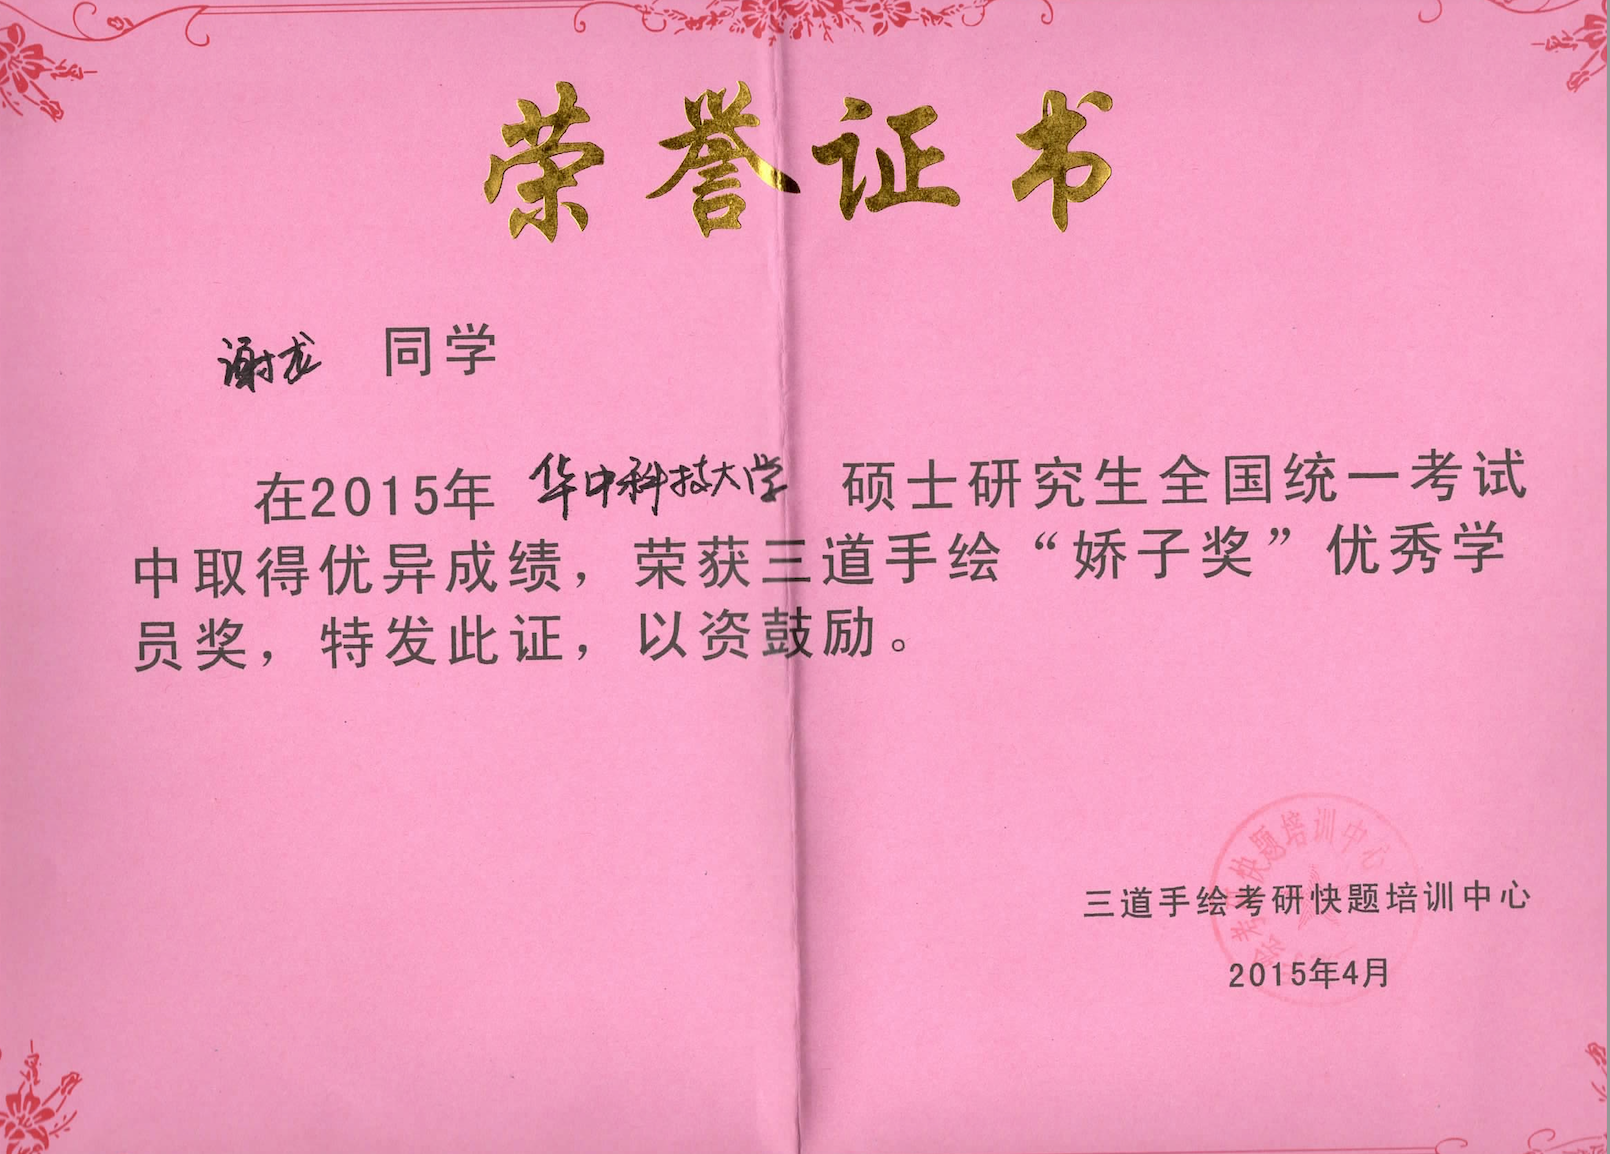 荣誉证书
谢龙 同学
在2015年 华中科技大学 硕士研究生全国统一考试
中取得优异成绩，荣获三道手绘“娇子奖”优秀学
员奖，特发此证，以资鼓励。
快题培训中心
三道手绘考研快题培训中心
2015年4月